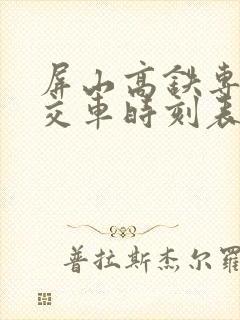 屏山高鉄専
交車時刻表
普拉斯杰尔羅